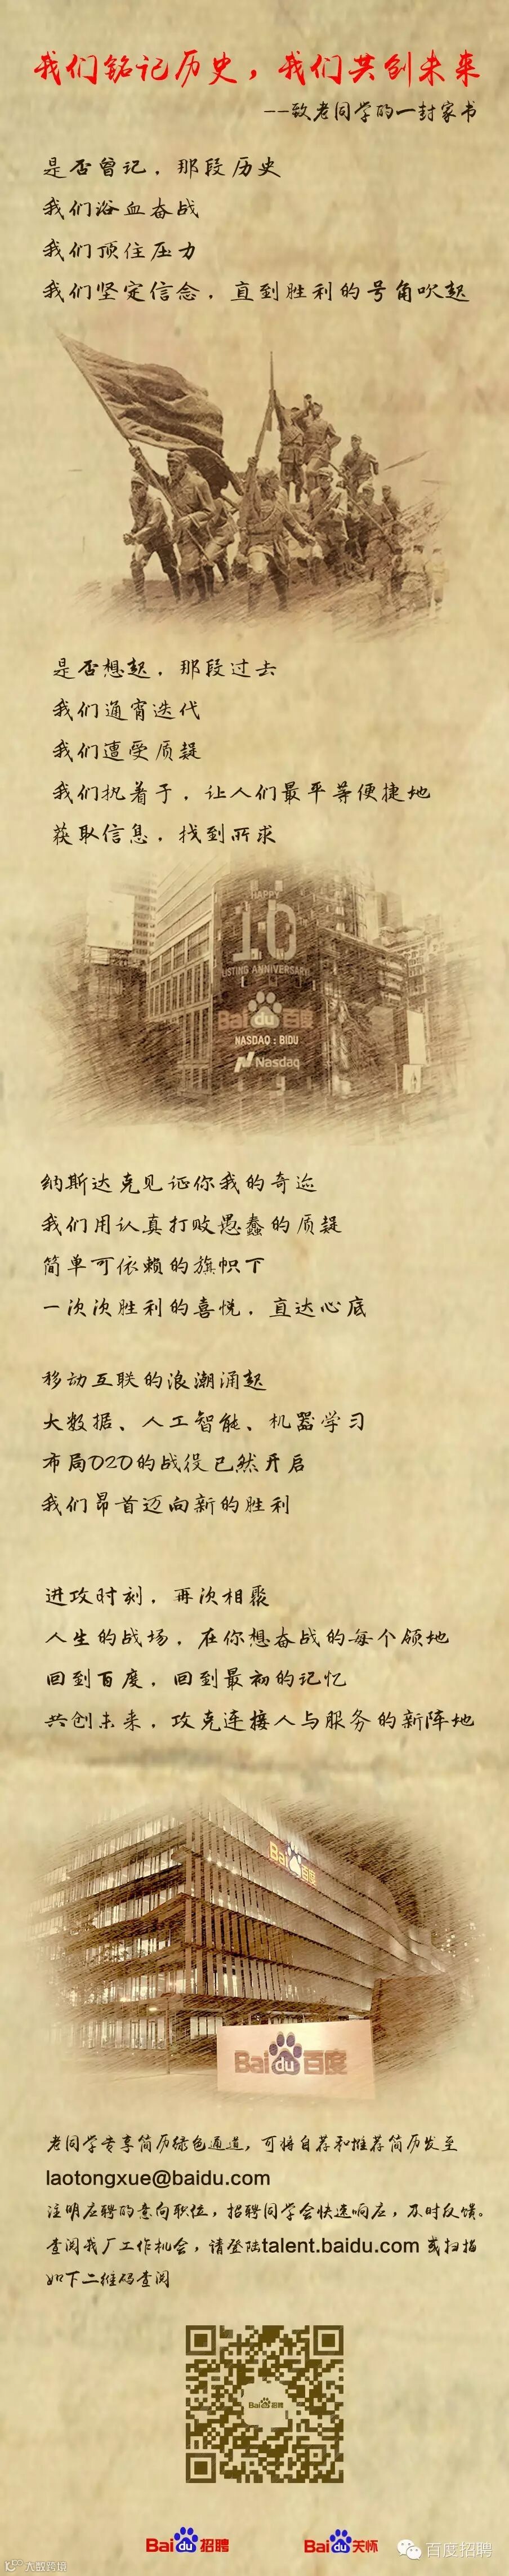 我们铭记历史，我们共创未来
--致老同学的一封家书
是否曾记，那段历史
我们浴血奋战
我们顶住压力
我们坚定信念，直到胜利的号角吹起
是否想起，那段过去
我们通宵迭代
我们遭受质疑
我们执着于，让人们最平等便捷地
获取信息，找到所求
HAPPY
10
LISTING ANNIVERSARY
Bai du 百度
NASDAQ : BIDU
Nasdaq
纳斯达克见证你我的奇迹
我们用认真打败愚蠢的质疑
简单可依赖的旗帜下
一次次胜利的喜悦，直达心底
移动互联的浪潮涌起
大数据、人工智能、机器学习
布局O2O的战役已然开启
我们昂首迈向新的胜利
进攻时刻，再次相聚
人生的战场，在你想奋战的每个领地
回到百度，回到最初的记忆
共创未来，攻克连接人与服务的新阵地
Bai du 百度
Bai du 百度
老同学专享简历绿色通道，可将自荐和推荐简历发至
laotongxue@baidu.com
注明应聘的意向职位，招聘同学会快速响应，及时反馈。
查阅我厂工作机会，请登陆talent.baidu.com 或扫描
如下二维码查阅
Bai du 招聘
Bai du 招聘
Bai du 关怀
百度招聘
大数跨境